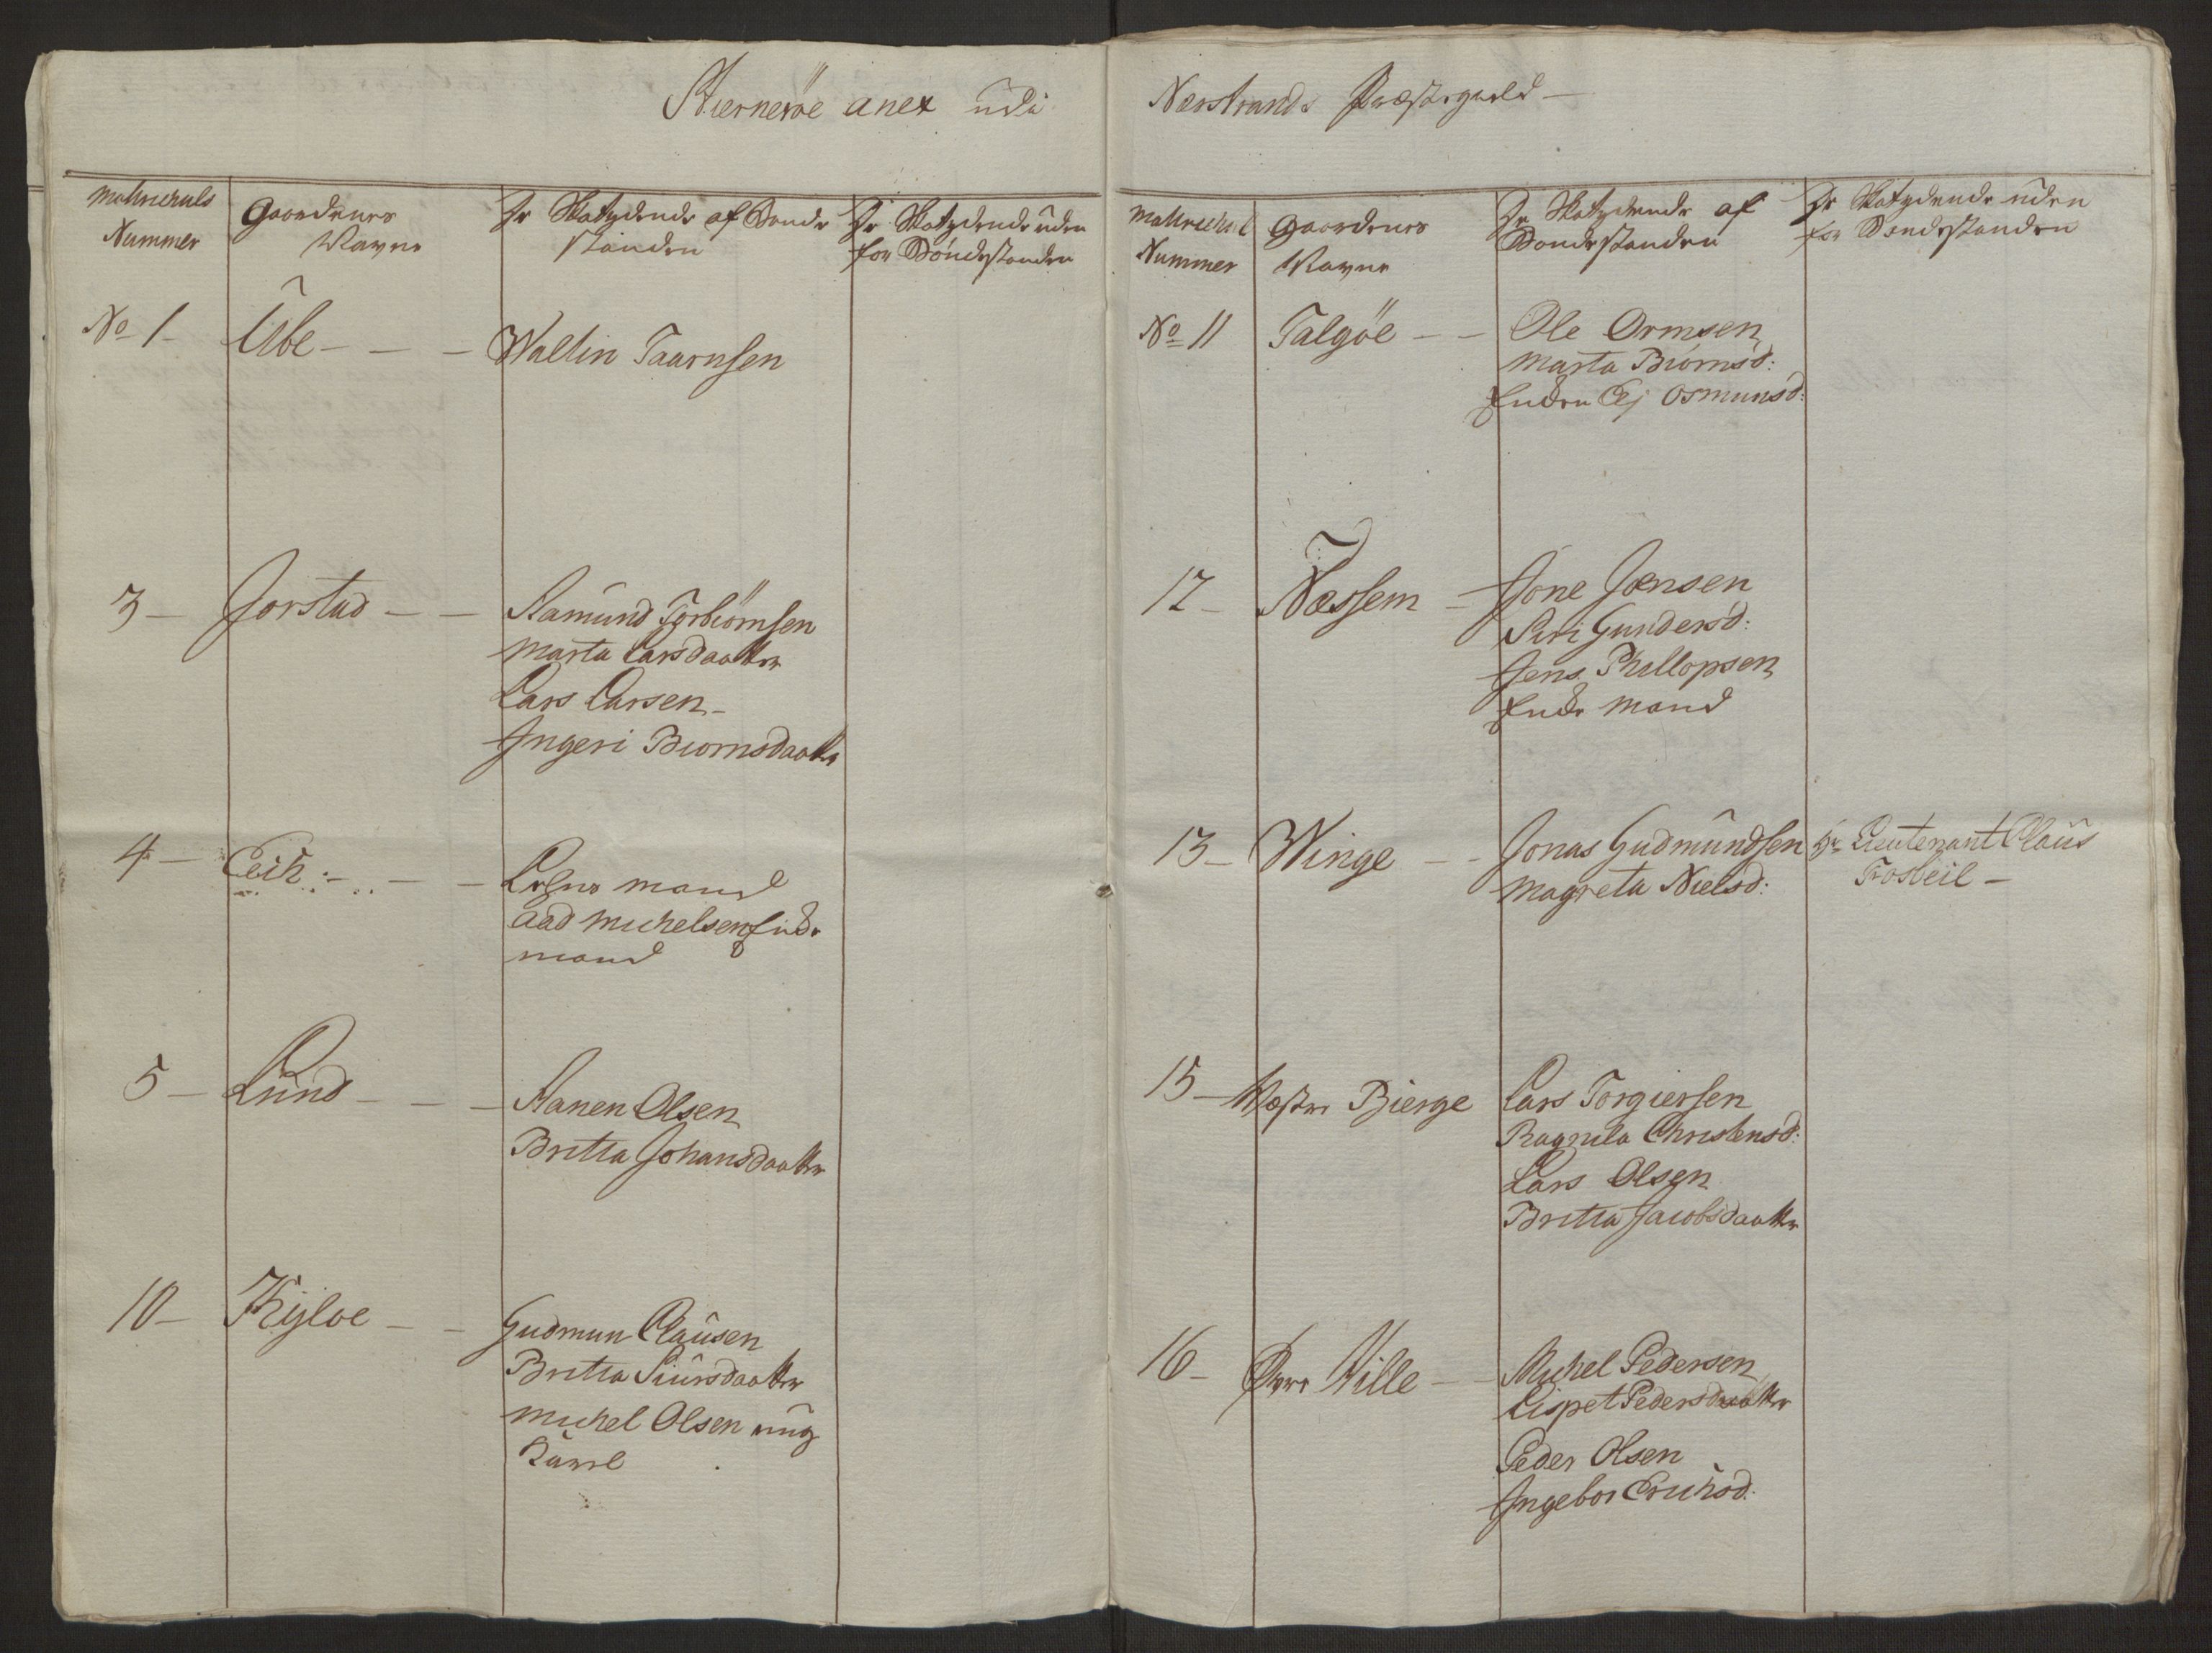 Stiernerøe anex udi
Matriculs
Nummer
Gaardenes
Navne
De Skatydende af Bonde
standen
De Skatydende uden
for Bondestanden
No 1 Übe Waltin Taarnsen
3 Jorstad Aamund Torbiörnsen
Marta Larsdaatter
Lars Larsen
Ingeri Biornsdaatter
4 Eeik mand
Aad Michelsen Enke
mand
5 Lund Aanen Olsen
Britta Johansdaatter
10 Kijloe Gudmun Clausen
Britta Siursdaatter
Michel Olsen ung
Karel
Nerstrands Præstegield
Matricul
Nummer
Gaardenes
Navne
De Skatydende af
Bondestanden
De Skatydende uden
for Bondestanden
No 11 Talgöe Ole Ormsen
Marta Biörnsd:
Enken Osmunsd:
12 Næssem Jone Jonsen
Siri Gundersd:
Jens Phillopsen
Enke mand
13 Winge Jonas Gudmundsen Hr Lieutenant Claus
Magreta Nielsd:
15 Westre Bierge Lars Torgiersen
Ragnila Christensd:
Lars Olsen
Britta Jacobsdaatter
16 Øvre Hille Michel Pedersen
Lispet Pedersdaatter
Peder Olsen
Ingebor Erichsd: